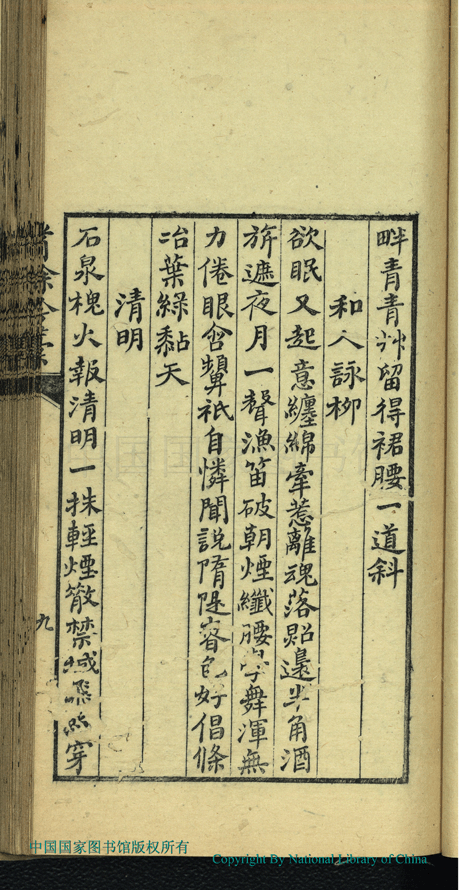 畔青青艸留得裙腰一道斜
和人詠栁
欲眠又起意纏綿牽惹離魂落照邊半角酒
旂遮夜月一聲漁笛破朝煙纖腰學舞渾無
力倦眼含顰祇自憐聞說隋隄春色好倡條
冶葉綠黏天
清明
石泉槐火報清明一抹輕煙散禁城飛絮穿
九
中国国家图书馆版权所有
Copyright By National Library of China